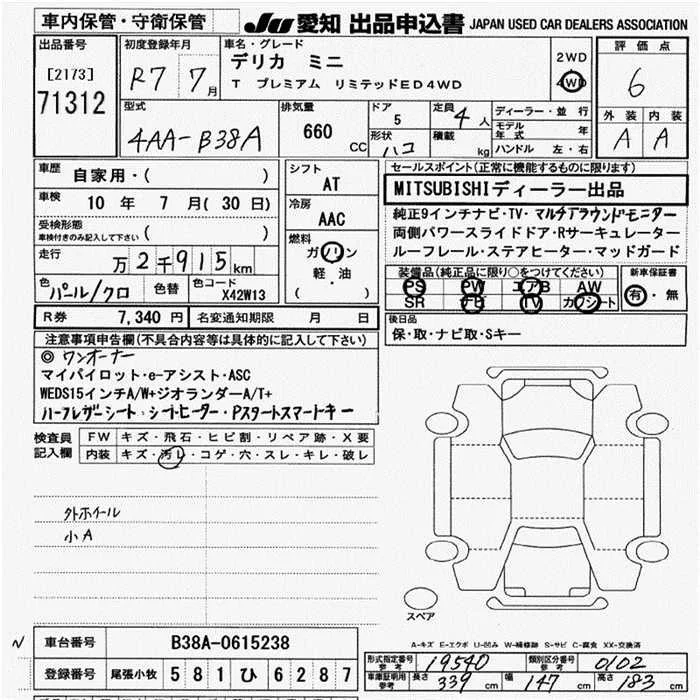 車内保管・守衛保管
JU 愛知 出品申込書 JAPAN USED CAR DEALERS ASSOCIATION
出品番号
[2173]
71312
初度登録年月
R7 7月
車名・グレード
デリカ ミニ
T プレミアム リミテッドED4WD
2WD
4WD
評価点
6
外装 内装
A A
型式
4AA-B38A
排気量
660 CC
ドア
5
形状
ハコ
定員
4人
積載 kg
ディーラー・並行
モデル年式 年
ハンドル 左・右
車歴
自家用・( )
車検
10年 7月(30日)
受検形態
車検付きのみ記入して下さい ( )
走行
万2千915km
色 パール/クロ 色替 色コード X42W13
シフト
AT
冷房
AAC
燃料
ガソリン
軽・油
( )
セールスポイント(正常に機能するものに限ります)
MITSUBISHIディーラー出品
純正9インチナビ・TV・マルチアラウンドモニター
両側パワースライドドア・Rサーキュレーター
ルーフレール・ステアヒーター・マッドガード
装備品(純正品に限り○をつけてください)
PS PW エアB AW
SR ナビ TV カワシート
新車保証書
有・無
R券 7,340円 名変通知期限 月 日
後日品
保・取・ナビ取・Sキー
注意事項申告欄(不具合内容等は具体的に記入して下さい)
◎ ワンオーナー
マイパイロット・e-アシスト・ASC
WEDS15インチA/W+ジオランダーA/T+
ハーフレザーシート・シートヒーター・Pスタートスマートキー
検査員記入欄
FW キズ・飛石・ヒビ割・リペア跡・X要
内装 キズ・汚レ・コゲ・穴・スレ・キレ・破レ
外ホイール
小A
スペア
A-キズ E-エクボ U-凹み W-補修跡 S-サビ C-腐食 XX-交換済
N
車台番号 B38A-0615238
登録番号 尾張小牧 581 ひ 6287
形式指定番号 参考 19540 類別区分番号 参考 0102
車庫証明用 参考 長さ 339cm 幅 147cm 高さ 183cm